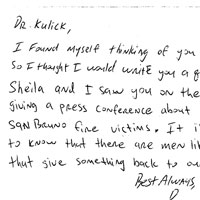 DR. KULICK,
I FOUND MYSELF THINKING OF YOU
SO I THOUGHT I WOULD WRITE YOU A
SHEILA AND I SAW YOU ON THE
GIVING A PRESS CONFERENCE ABOUT
SAN BRUNO FIRE VICTIMS. IT
TO KNOW THAT THERE ARE MEN
THAT GIVE SOMETHING BACK TO
BEST ALWAYS,